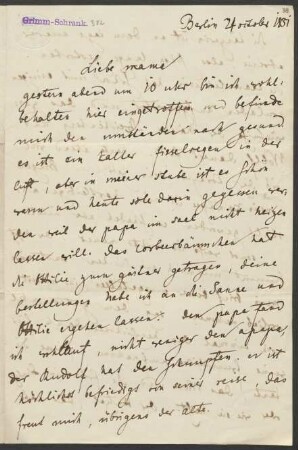 Grimm-Schrank.
Berlin 24 october 1851
Liebe mama
gestern abend um 10 uhr bin ich wohl-
behalten hier eingetroffen und befinde
mich den umständen nach gesund
es ist ein kalter in der
luft, aber in meier stube ist es schön
warm und heute soll darin gegessen wer-
den, weil der papa im saal nicht heizen
lassen will. das lorberbäumchen hat
die Ottilie zum gärtner getragen, deine
bestellungen habe ich an die und
Ottilie ergehen lassen. den papa fand
ich wohlauf, nicht weniger den apapa,
der Rudolf hat den schnupfen. er ist
höchlichst befriedigt von seiner reise, das
freut mich, übrigens der alte.